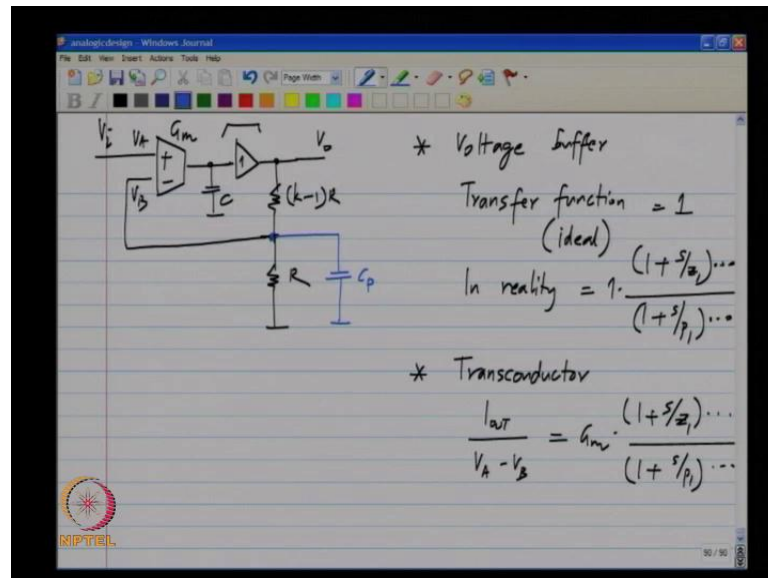 analogicdesign - Windows Journal
File Edit View Insert Actions Tools Help
Page Width
B I
Vi VA Gm 1 Vo
+
-
VB
C
(k-1)R
R
Cp
* Voltage buffer
Transfer function = 1
(ideal)
In reality = 1. (1 + s/z1)... / (1 + s/p1)...
* Transconductor
IOUT / VA - VB = Gm. (1 + s/z1)... / (1 + s/p1)...
NPTEL
90 / 90